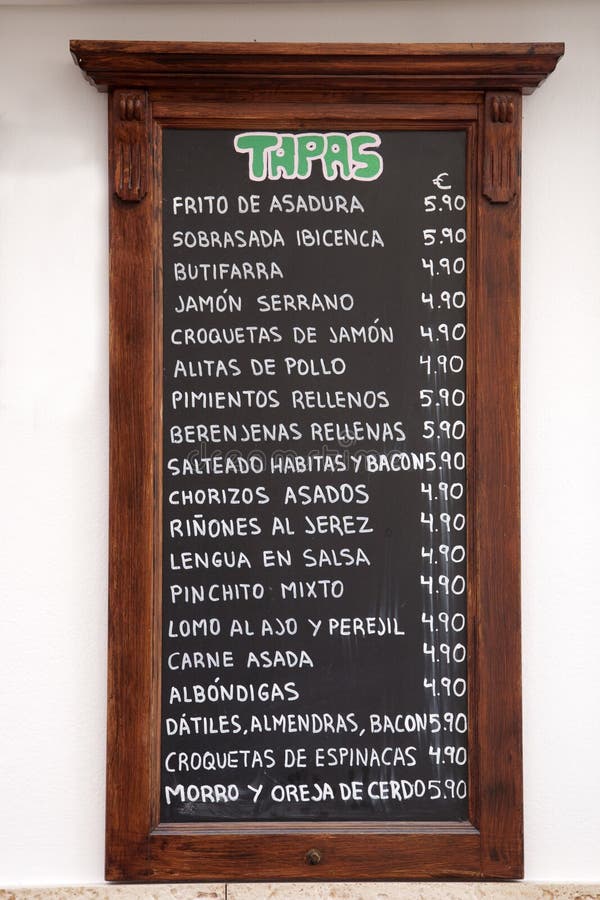 TAPAS
€
FRITO DE ASADURA 5.90
SOBRASADA IBICENCA 5.90
BUTIFARRA 4.90
JAMÓN SERRANO 4.90
CROQUETAS DE JAMÓN 4.90
ALITAS DE POLLO 4.90
PIMIENTOS RELLENOS 5.90
BERENJENAS RELLENAS 5.90
SALTEADO HABITAS Y BACON 5.90
CHORIZOS ASADOS 4.90
RIÑONES AL JEREZ 4.90
LENGUA EN SALSA 4.90
PINCHITO MIXTO 4.90
LOMO AL AJO Y PEREJIL 4.90
CARNE ASADA 4.90
ALBÓNDIGAS 4.90
DÁTILES, ALMENDRAS, BACON 5.90
CROQUETAS DE ESPINACAS 4.90
MORRO Y OREJA DE CERDO 5.90